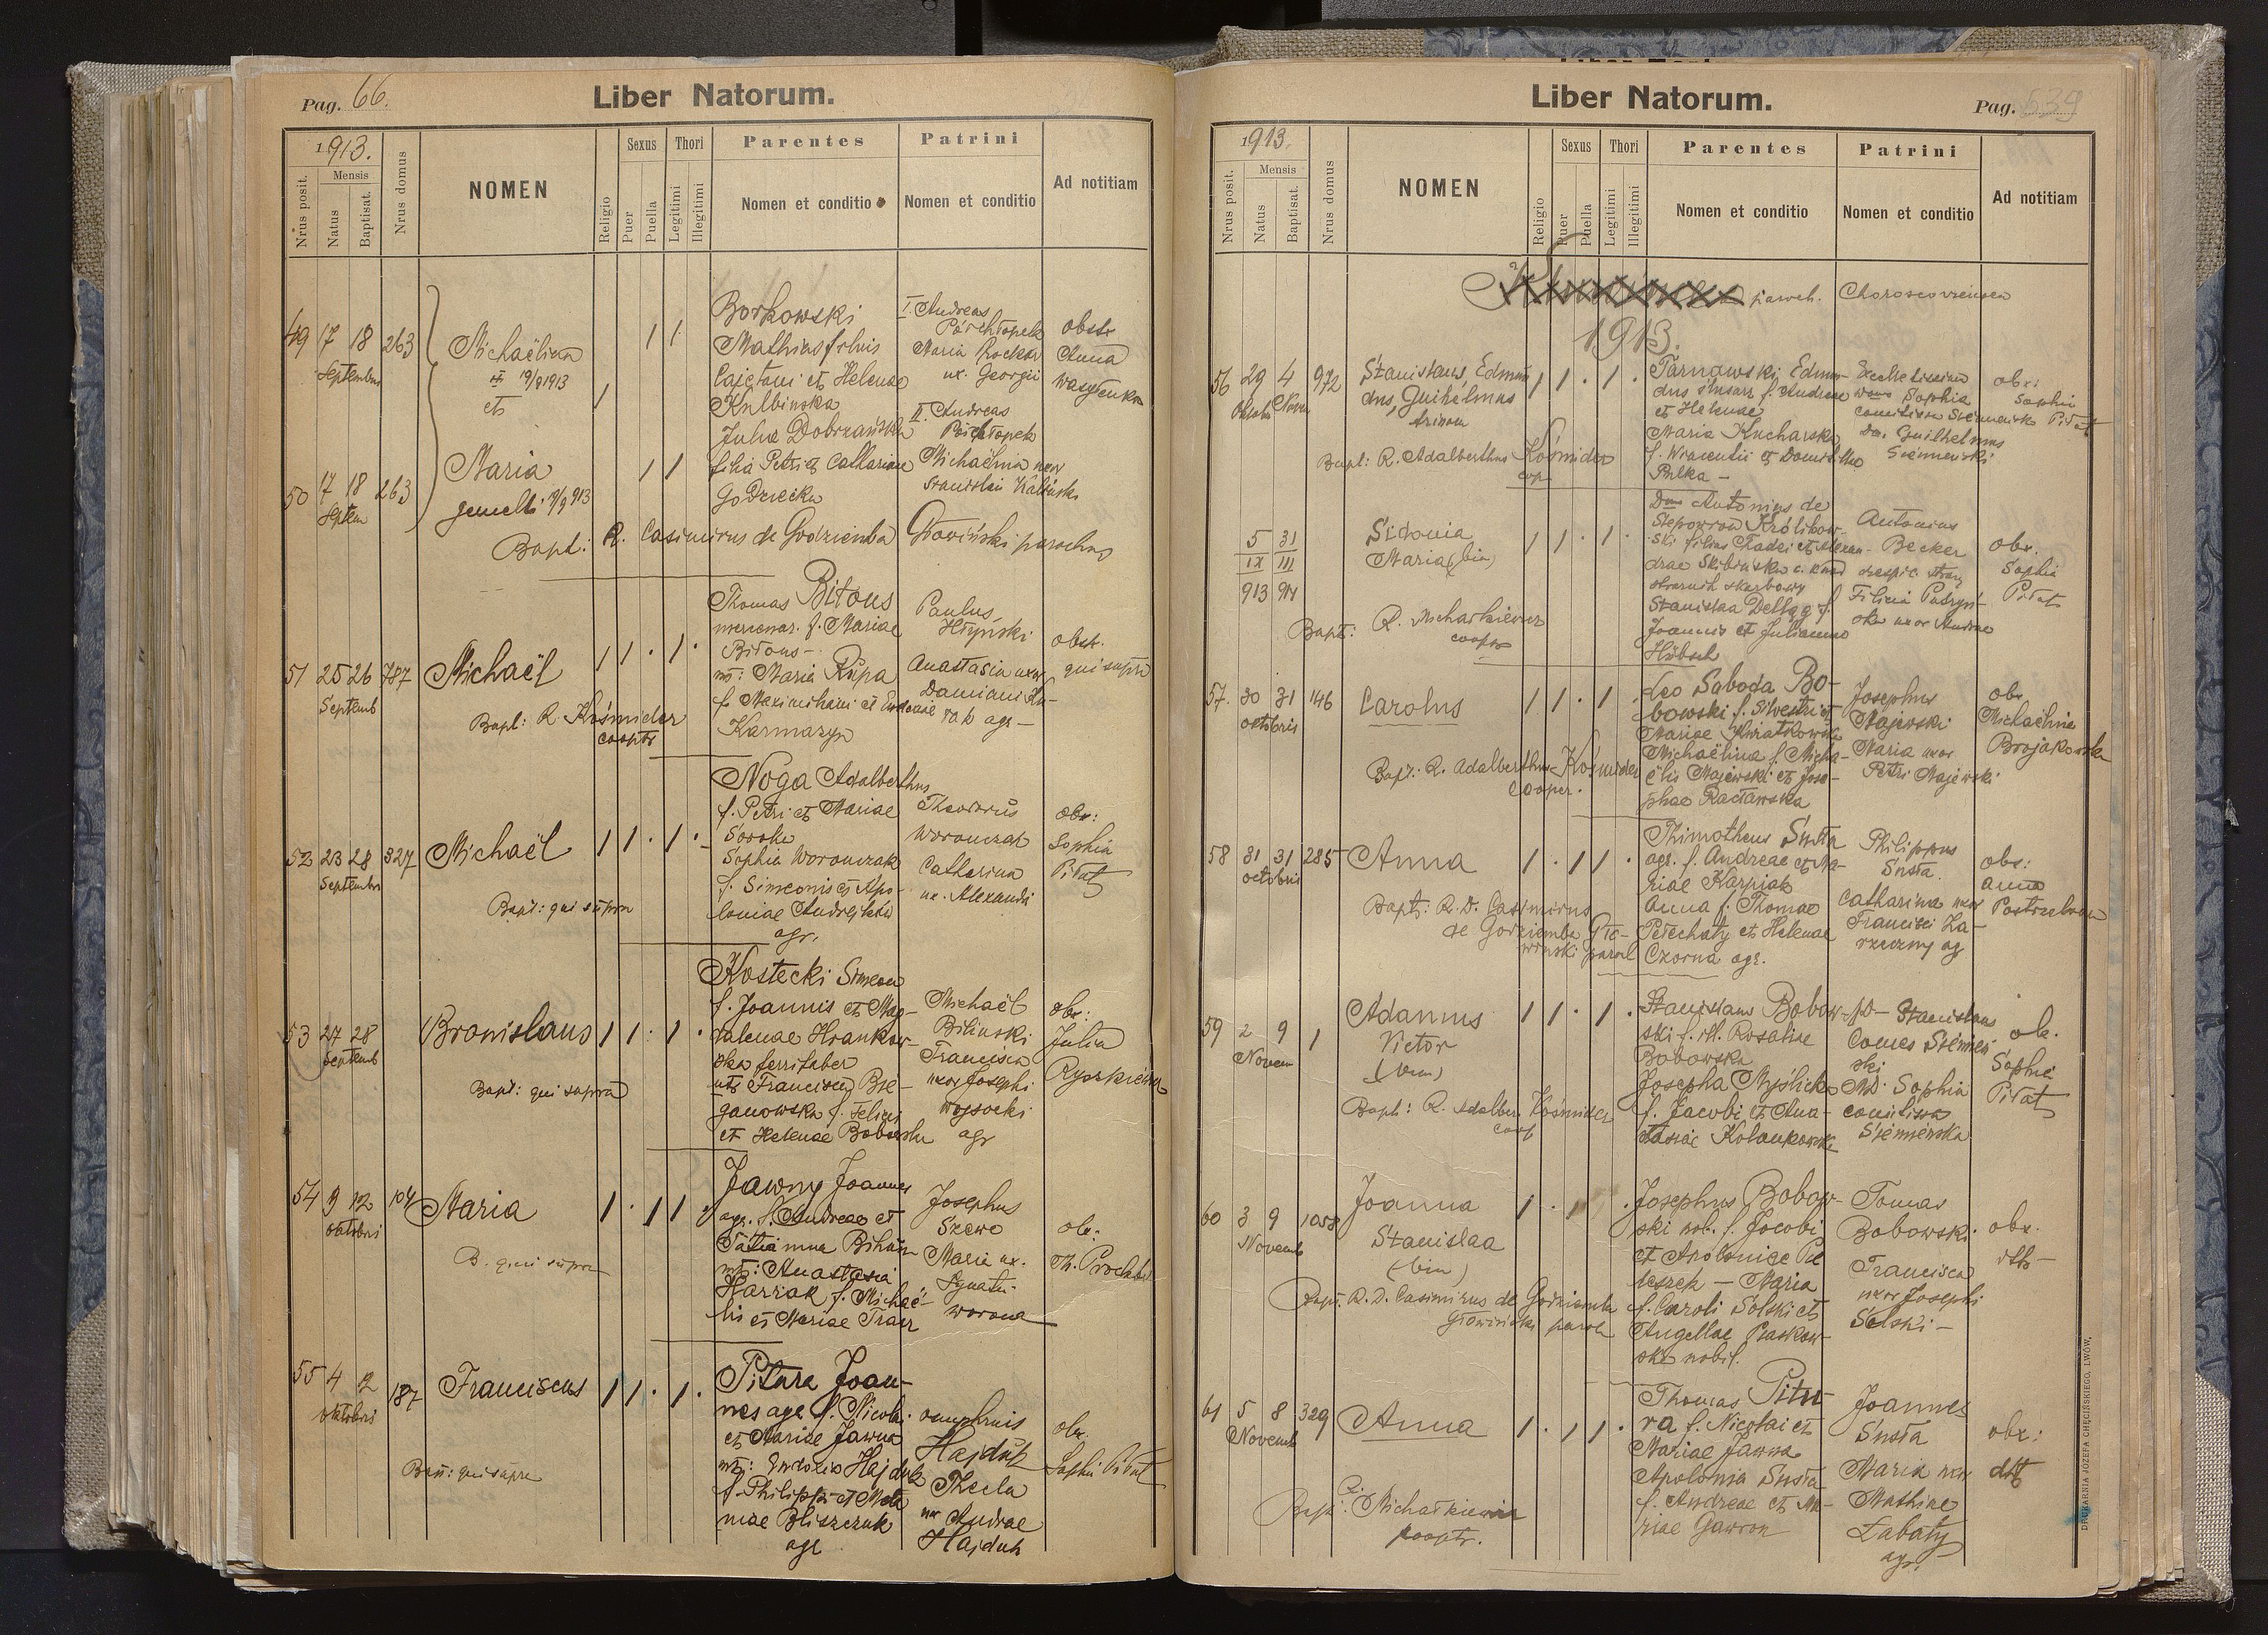 Pag. 66.
Liber Natorum.
1913.
Nrus posit.
Mensis
Natus
Baptisat.
Nrus domus
NOMEN
Religio
Sexus
Puer
Puella
Thori
Legitimi
Illegitimi
Parentes
Nomen et conditio
Patrini
Nomen et conditio
Ad notitiam
49 17 18 263
Septembris
Michaëlina
19/9 1913
et
Borkowski
Mathias filius
Cajetani et Helenae
Kulbinska
Julia Dobrzańska
filia Petri et Catharinae
Godzecka
I. Andreas
Parchlopek
Maria
ux. Georgii
II. Andreas
Michaëlina uxor
Stanislai
obstr
Anna
Wasylenko
50 17 18 263
Septem
Maria
gemelli 19/9 913
Bapt: R. Casimirus de Godziemba Głowiński parochus
51 25 26 787
Septemb
Michaël
Bapt: R. Kośmider
cooptr
Thomas Bitous
mercenar. f. Mariae
Bitous –
m: Maria Rupa
f. Maximiliani et Eudociae
Karmazyn
Paulus
Hłynski
Anastasia uxor
Damiani Ku-
rak agr –
obst.
qui supra
52 23 28 327
Septembris
Michaël
Bapt: qui supra
Noga Adalberthus
f. Petri et Mariae
Soroka
Sophia Woronczak
f. Simeonis et Apo-
loniae Andrejków
agr.
Theodorus
Woronczak
Catharina
ux. Alexandri
obs:
Sophia
Piłat
53 27 28
Septemb
Bronislaus
Bapt: qui supra
Kostecki Simeon
f. Joannis et Mag-
dalenae Hrankow-
ska ferrifaber
et Francisca Bie-
ganowska f. Felicis
et Helenae Bobowska
Michaël
Biliński
Francisca
uxor Josephi
Wysocki
agr
obs:
Julia
54 9 12 104
oktobris
Maria
B. qui supra
Jawny Joannes
agr. f. Andreae et
Tatianna Bihun
m: Anastasia
Harzak f. Michaë-
lis et Mariae
Josephus
Szewc
Maria ux.
Ignatii
Worona
obs:
55 4 12 187
oktobris
Franciscus
Bapt: qui supra
Pitura Joan-
nes agr f. Nicolai
et Mariae Jawna
m: Eudoxia Hajduk
f. Philippi et Mela-
niae Bliszczuk
agr
onuphrius
Hajduk
Thecla
uxr Andrae
Hajduk
obs.
Sophia Piłat
Liber Natorum.
Pag. 639
1913.
Nrus posit.
Mensis
Natus
Baptisat.
Nrus domus
NOMEN
Religio
Sexus
Puer
Puella
Thori
Legitimi
Illegitimi
Parentes
Nomen et conditio
Patrini
Nomen et conditio
Ad notitiam
paroch. Choroscoviensea
1913.
56 29 4 972
Oktobr Novem
Stanislaus, Edmun
dus, Guilhelmus
Bapt: R. Adalberthus Kośmider
coop
Tarnawski Edmun-
dus ślusarz f. Andreae
et Helenae
Maria Kucharska
f. Wincentii et Domicilla
Pulka –
Excellentissima
Dna Sophia
comitissa Siemieńska
Dn. Guilhelmus
Siemieński
obs:
Sophia
Piłat
5 31
IX III
913 914
Sidonia
Maria (bin)
Bapt: R. Michałkiewicz
cooptr
Dnus Antonius de
Ślepowron Królikow-
ski filius Tadei et Alexan-
drae Skibińska c. k. nad
strażnik skarbowy
Stanislaa Dellag f.
Joannis et Julianna
Hübsch
Antonius
Becker
respic. straż
Felicia
ska uxor Andreae
obs.
Sophia
Piłat
57. 30 31 146
oktobris
Carolus
Bapt: R. Adalberthus Kośmider
cooper.
Leo Saboda Bo-
bowski f. Silvestri et
Mariae Kwiatkowska
Michaëlina f. Micha-
ëlis Majewski et Jose-
phae Racławska
Josephus
Majewski
Maria uxor
Petri Majewski
obs
Michaëlina
Brojakowska
58 31 31 285
octobris
Anna
Bapt: R. D. Casimirus
de Godziemba Gło-
wiński paroch
Thimotheus Susta
agr. f. Andreae et Ma-
riae Karpiak
Anna f. Thomae
Pełechaty et Helenae
Czorna agr.
Philippus
Susta
Catharina uxor
Francisci Za-
rzeczny ag
obs:
Anna
59 2 9 1
Novem
Adamus
Victor
(bin)
Bapt: R. Adalber. Kośmider
coop
Stanislaus Bobow-
ski f. ill. Rosaliae
Bobowska
Josepha Myślicka
f. Jacobi et Ana-
stasiae Kolankowska
MD – Stanislaus
Comes Siemień-
ski
MD. Sophia
comitissa
Siemieńska
ob.
Sophia
Piłat
60 3 9 1058
Novemb
Joanna
Stanislaa
(bin)
Bapt. R. D. Casimirus de Godziemba
Głowiński paroch
Josephus Bobow-
ski nob. f. Jacobi
et Apoloniae Pie
leszek – Maria
f. Caroli Solski et
Angellae Piaskow-
ska nobil.
Tomas
Bobowski
Francisca
uxor Josephi
Solski –
obs.
dtto –
61 5 8 329
Novemb
Anna
Bapt: R. Michałkiewicz
kooptr.
Thomas Pitu-
ra f. Nicolai et
Mariae Jawna
Apolonia Susta
f. Andreae et Ma-
riae Gawron
Joannes
Susta
Maria uxor
Mathiae
Łabaty
agr.
obs:
dtt
DRUKARNIA JÓZEFA CHĘCIŃSKIEGO, LWÓW.